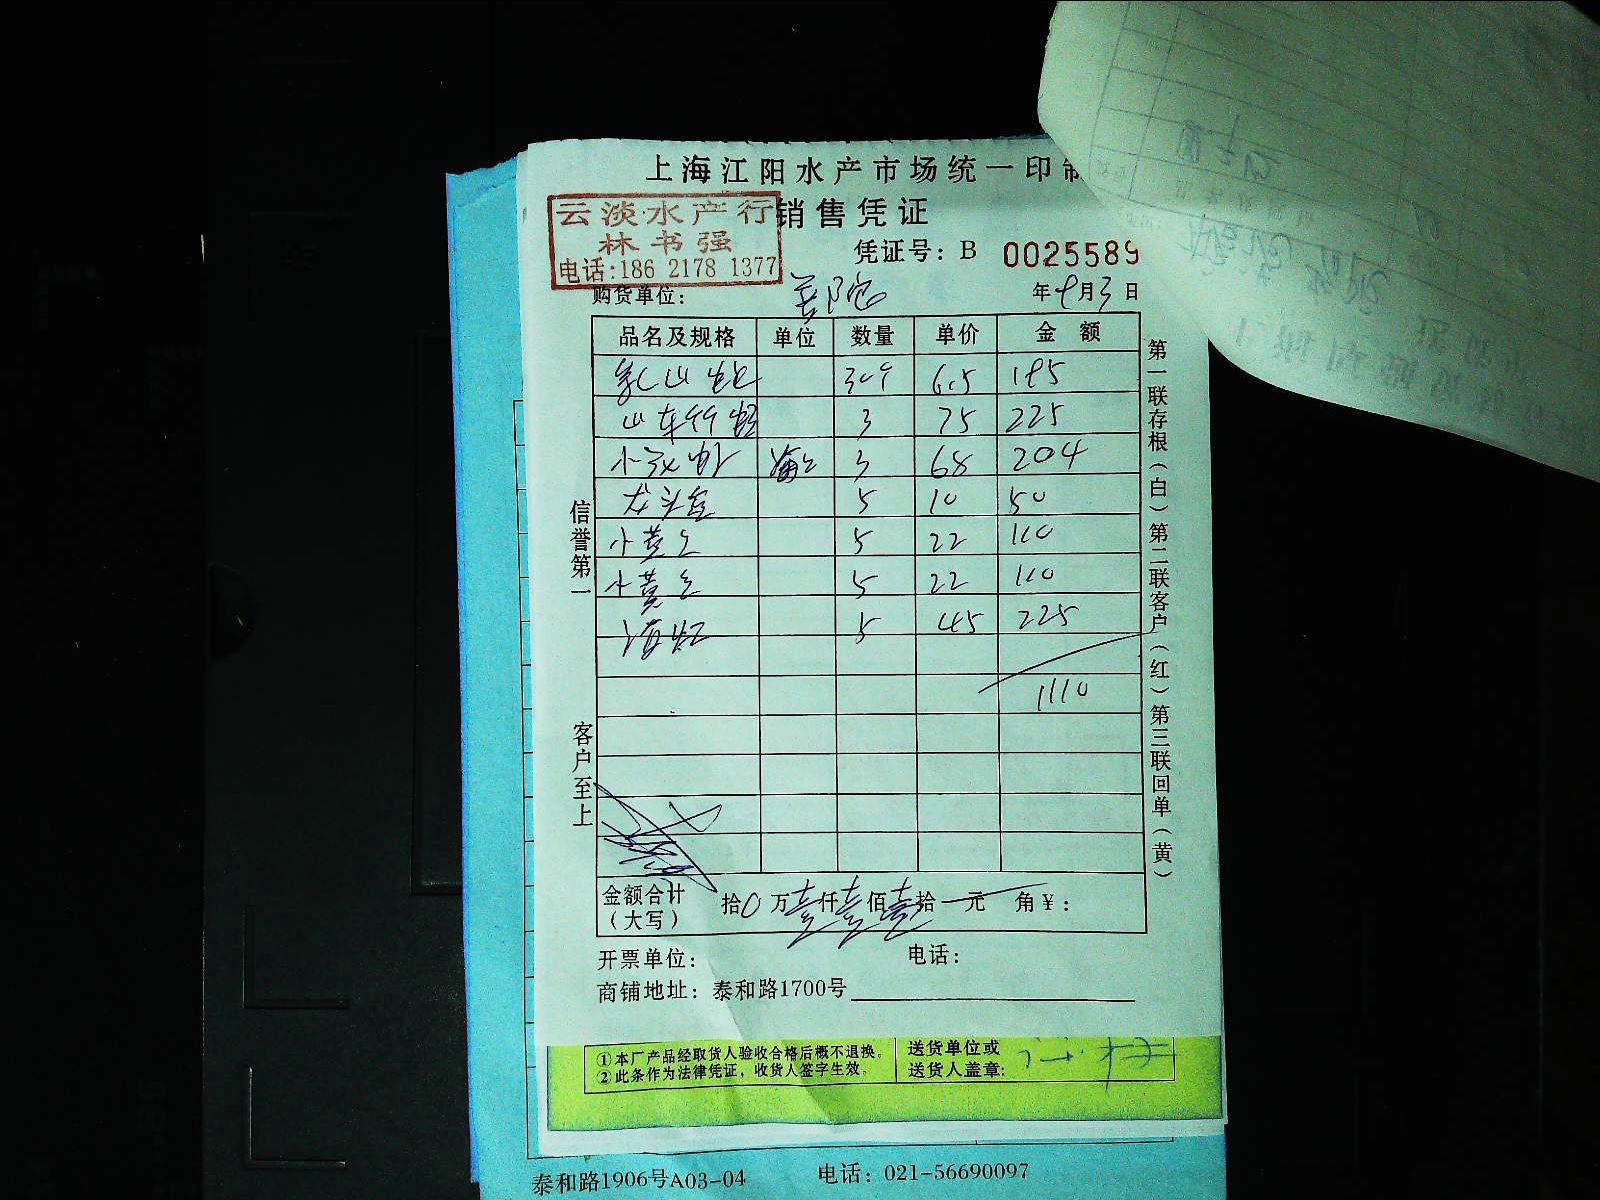 上海江阳水产市场统一印制
云淡水产行 销售凭证
林书强
凭证号：B 0025589
电话:186 2178 1377
购货单位： 年 9月3日
品名及规格 单位 数量 单价 金额
乳山 30个 6.5 195
山东 3 75 225
小 3 68 204
龙头 5 10 50
小黄 5 22 110
小黄 5 22 110
5 45 225
1110
信誉第一
客户至上
第一联存根（白）第二联客户（红）第三联回单（黄）
金额合计（大写） 拾0万壹仟壹佰壹拾 元 角¥：
开票单位： 电话：
商铺地址：泰和路1700号
①本厂产品经取货人验收合格后概不退换。
②此条作为法律凭证，收货人签字生效。
送货单位或
送货人盖章：
泰和路1906号A03-04 电话：021-56690097